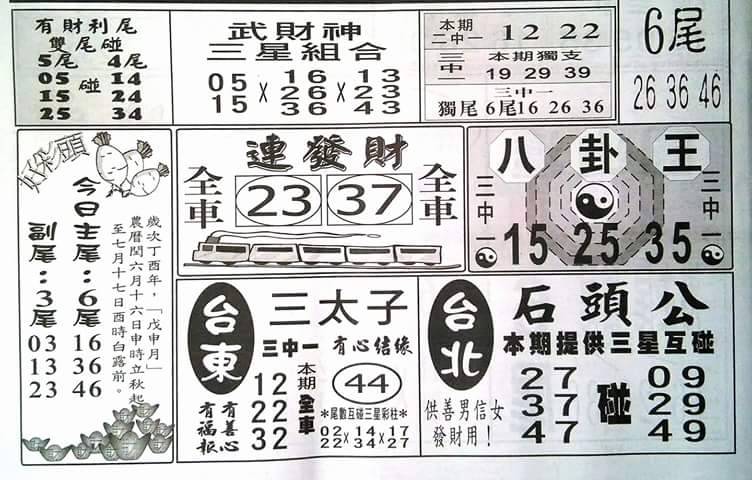 有財利尾
雙尾碰
5尾 4尾
05 碰 14
15 24
25 34
武財神
三星組合
05 × 16 × 13
15 26 23
36 43
本期
二中一
12 22
三中一
本期獨支
19 29 39
三中一
獨尾 6尾16 26 36
6尾
26 36 46
好彩頭
今日主尾：6尾
16
36
46
副尾：3尾
03
13
23
歲次丁酉年，「戊申月」
農曆閏六月十六日申時立秋起
至七月十七日酉時白露前。
連發財
全車
23 37
全車
八卦王
三中一
15 25 35
三中一
台東
三太子
三中一 有心結緣
12
22
32
本期全車
44
有善心
有福報
*尾數互碰三星彩柱*
02×14×17
22 34 27
台北
石頭公
本期提供三星互碰
27 碰 09
37 29
47 49
供善男信女
發財用！